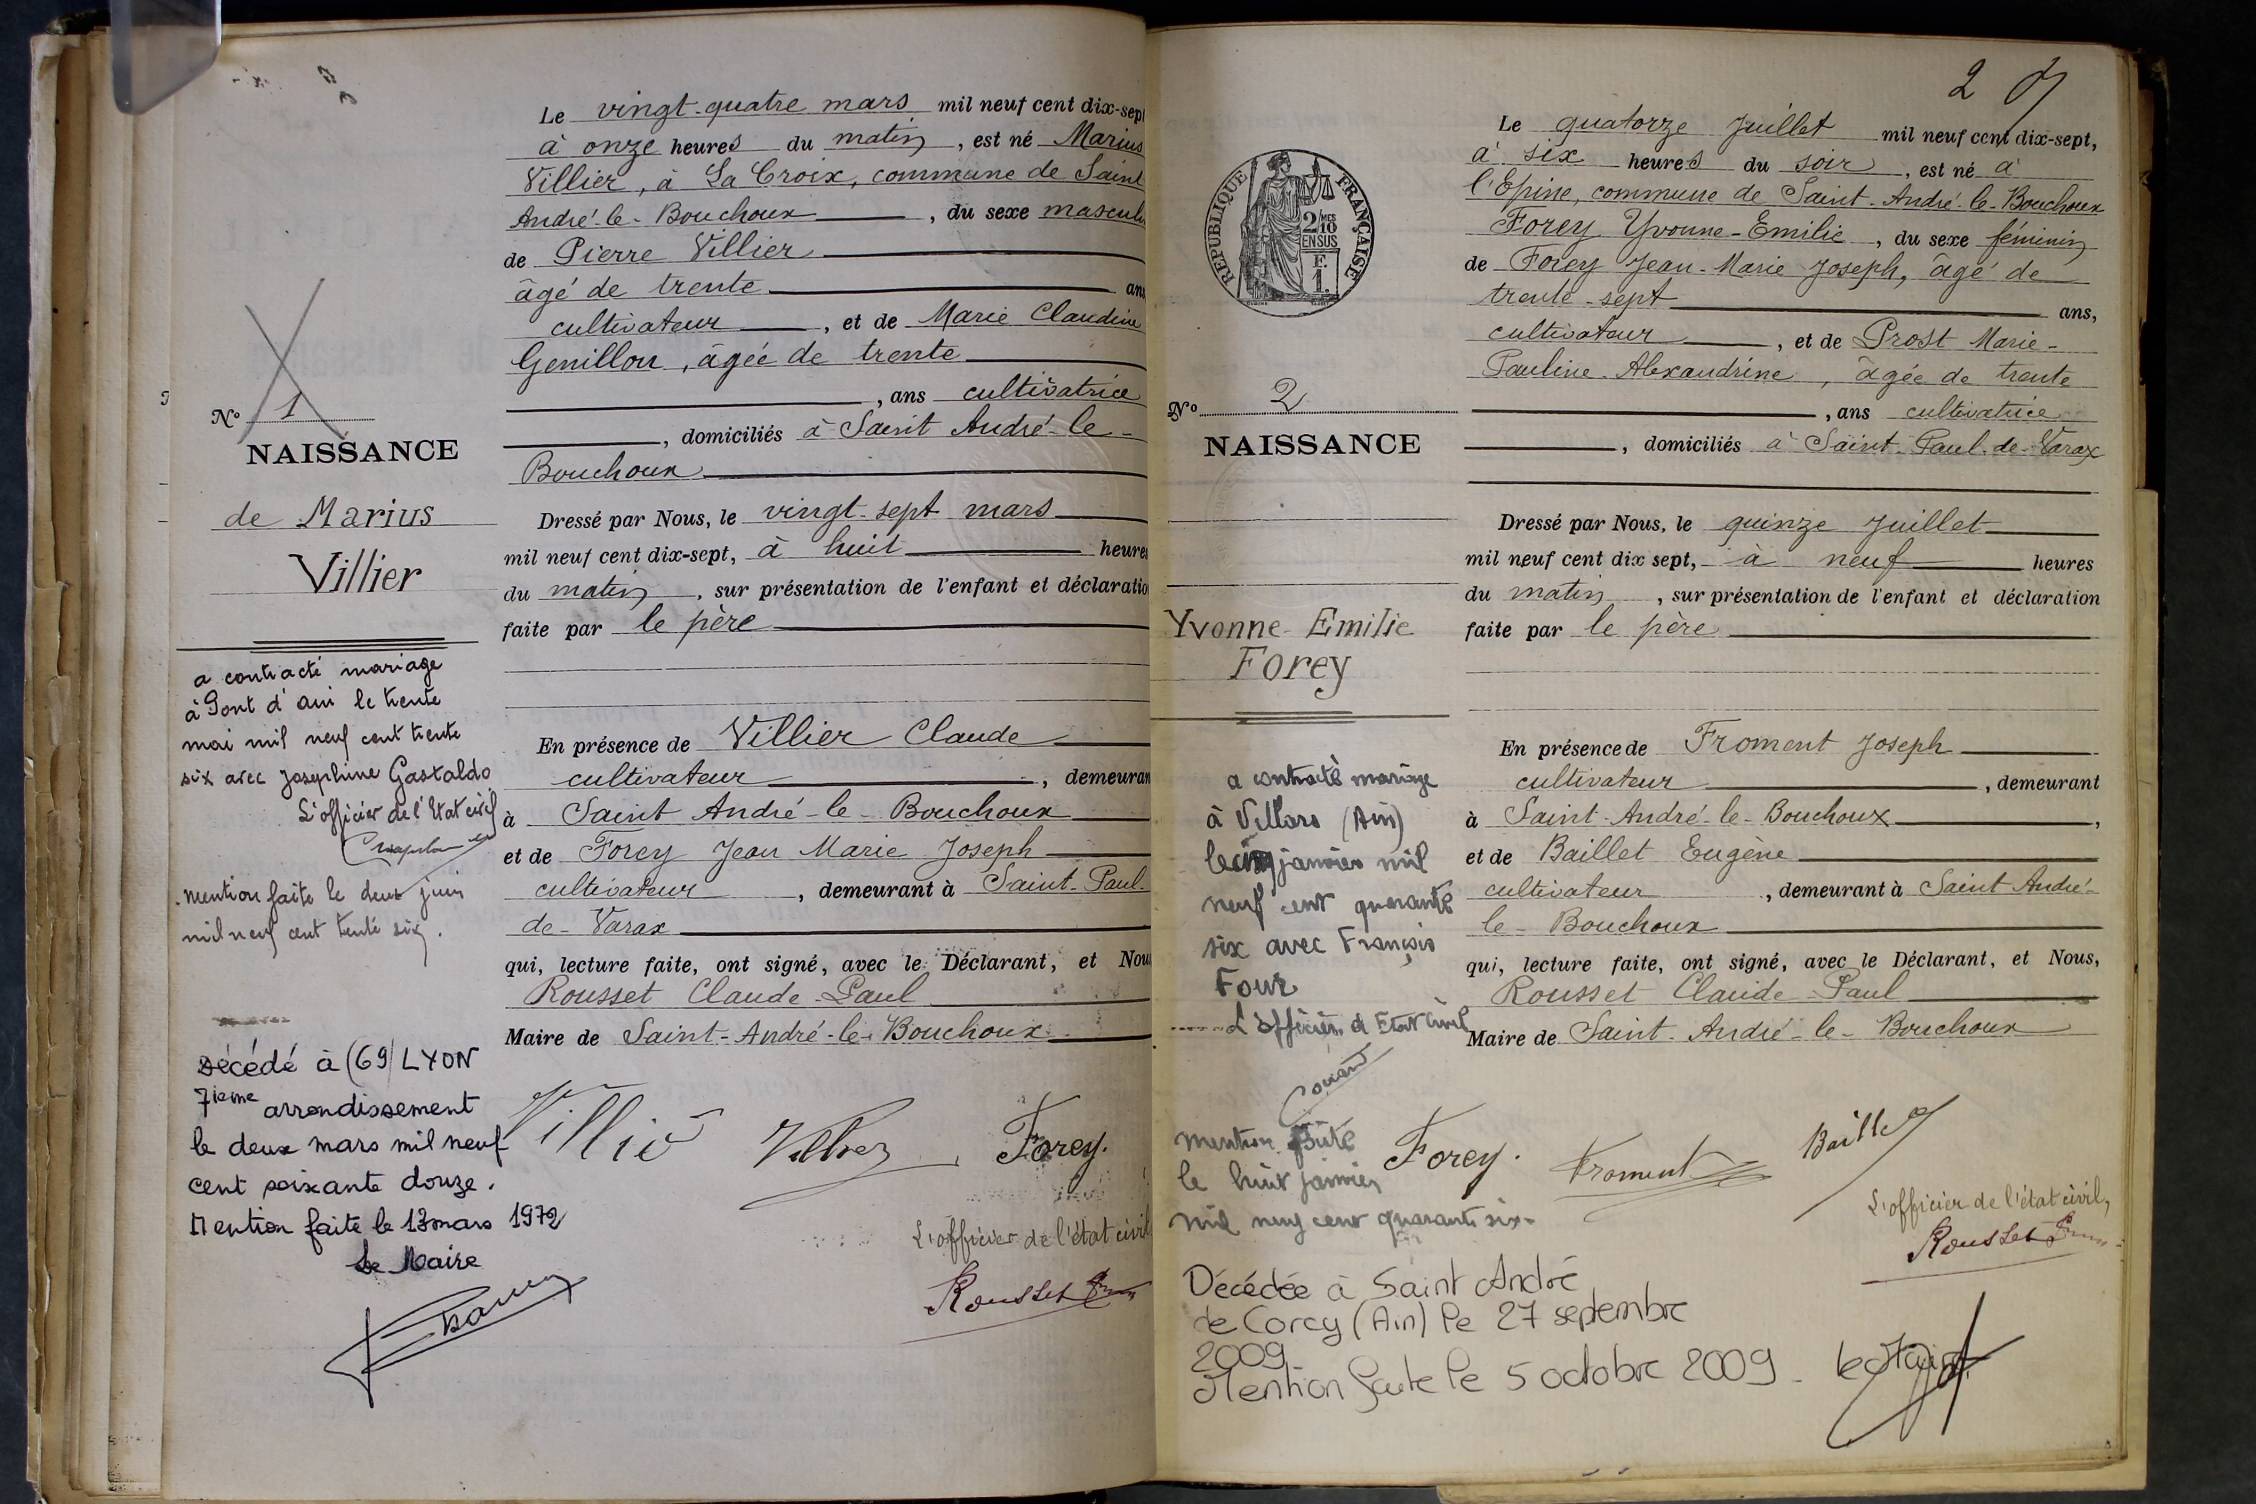 Le vingt-quatre mars mil neuf cent dix-sept
à onze heures du matin, est né Marius
Villier, à La Croix, commune de Saint
André-le-Bouchoux, du sexe masculin
de Pierre Villier
âgé de trente ans
cultivateur, et de Marie Claudine
Genillon, âgée de trente
, ans cultivatrice
, domiciliés à Saint André-le-
Bouchoux
Dressé par Nous, le vingt-sept mars
mil neuf cent dix-sept, à huit heures
du matin, sur présentation de l'enfant et déclaration
faite par le père
En présence de Villier Claude
cultivateur, demeurant
à Saint André-le-Bouchoux
et de Forey Jean Marie Joseph
cultivateur, demeurant à Saint-Paul-
de-Varax
qui, lecture faite, ont signé, avec le Déclarant, et Nous
Rousset Claude-Paul
Maire de Saint-André-le-Bouchoux
Forey.
L'officier de l'état civil
Rousset
No 1
NAISSANCE
de Marius
Villier
a contracté mariage
à Pont d'ain le trente
mai mil neuf cent trente
six avec Joséphine Gastaldo
L'officier de l'Etat civil
mention faite le deux juin
mil neuf cent trente six.
Décédé à (69) LYON
7ième arrondissement
le deux mars mil neuf
cent soixante douze.
Mention faite le 13 mars 1972
Le Maire
2
Le quatorze Juillet mil neuf cent dix-sept,
à six heures du soir, est né à
l'Epine, commune de Saint-André-le-Bouchoux
Forey Yvonne-Emilie, du sexe féminin
de Forey Jean-Marie Joseph, âgé de
trente-sept ans,
cultivateur, et de Prost Marie-
Pauline-Alexandrine, âgée de trente
, ans cultivatrice
, domiciliés à Saint-Paul-de-Varax
Dressé par Nous, le quinze Juillet
mil neuf cent dix sept, à neuf heures
du matin, sur présentation de l'enfant et déclaration
faite par le père
En présence de Froment Joseph
cultivateur, demeurant
à Saint-André-le-Bouchoux,
et de Baillet Eugène
cultivateur, demeurant à Saint André-
le-Bouchoux
qui, lecture faite, ont signé, avec le Déclarant, et Nous,
Rousset Claude-Paul
Maire de Saint-André-le-Bouchoux
Forey. Froment Baillet
L'officier de l'état civil,
Rousset
RÉPUBLIQUE FRANÇAISE
2/10 MES
EN SUS
F.
1.
No 2
NAISSANCE
Yvonne-Emilie
Forey
a contracté mariage
à Villars (Ain)
le cinq janvier mil
neuf cent quarante
six avec François
Four
L'officier d'Etat civil
mention faite
le huit janvier
mil neuf cent quarante six-
Décédée à Saint André
de Corcy (Ain) le 27 septembre
2009
Mention faite le 5 octobre 2009-